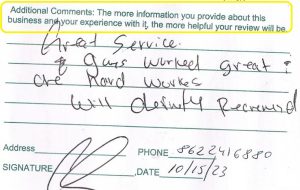 Additional Comments: The more information you provide about this
business and your experience with it, the more helpful your review will be.
Great Service.
guys worked great &
are hard workes
will definitly Recremend
Address
PHONE 8622416880
SIGNATURE
DATE 10/15/23